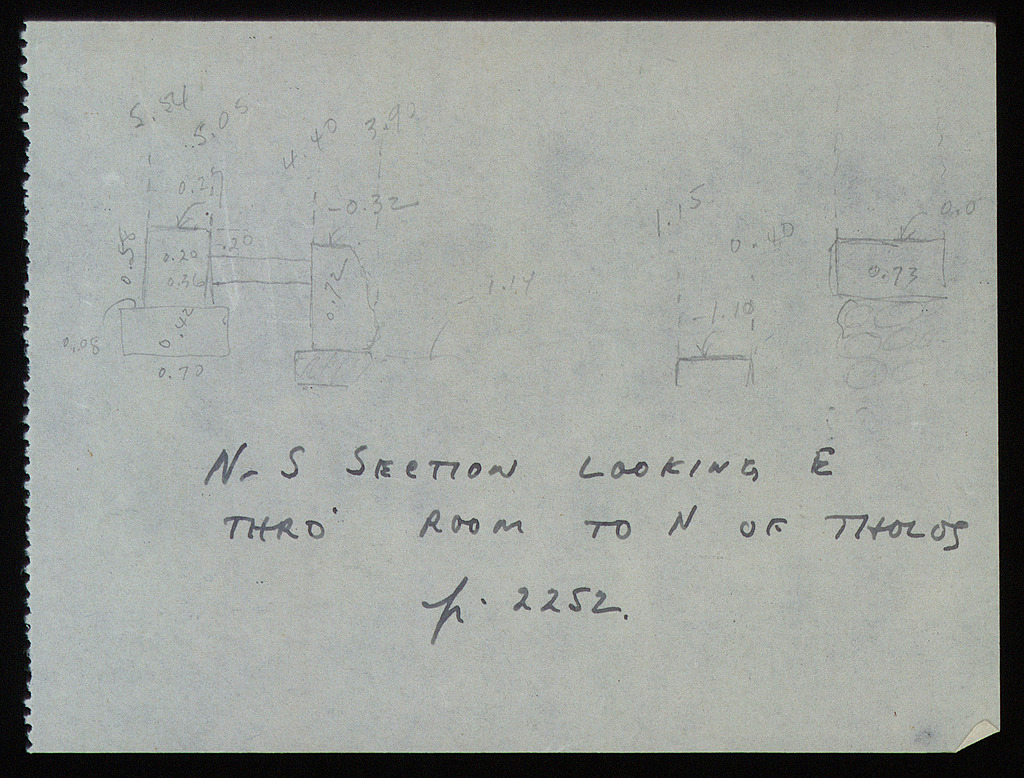 5.54
5.05
4.40
3.92
0.27
-0.32
0.0
1.15
0.58
.20
0.40
0.20
0.73
0.36
0.72
1.14
-1.10
0.42
0.08
0.70
N-S SECTION LOOKING E
THRO' ROOM TO N OF THOLOS
p. 2252.